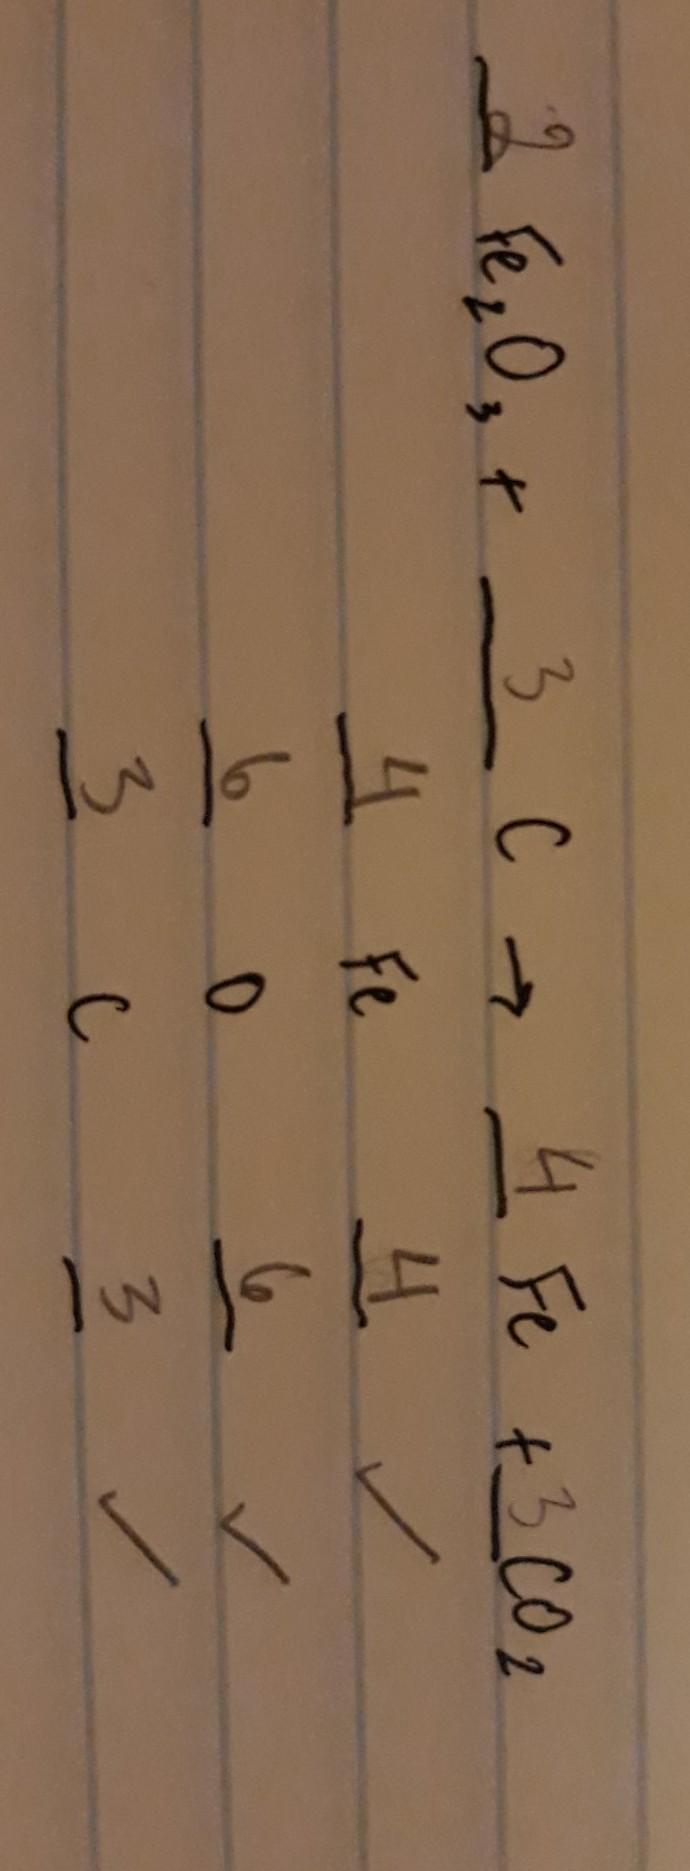 2 Fe₂O₃ + 3 C → 4 Fe + 3 CO₂
4 Fe 4 ✓
6 O 6 ✓
3 C 3 ✓